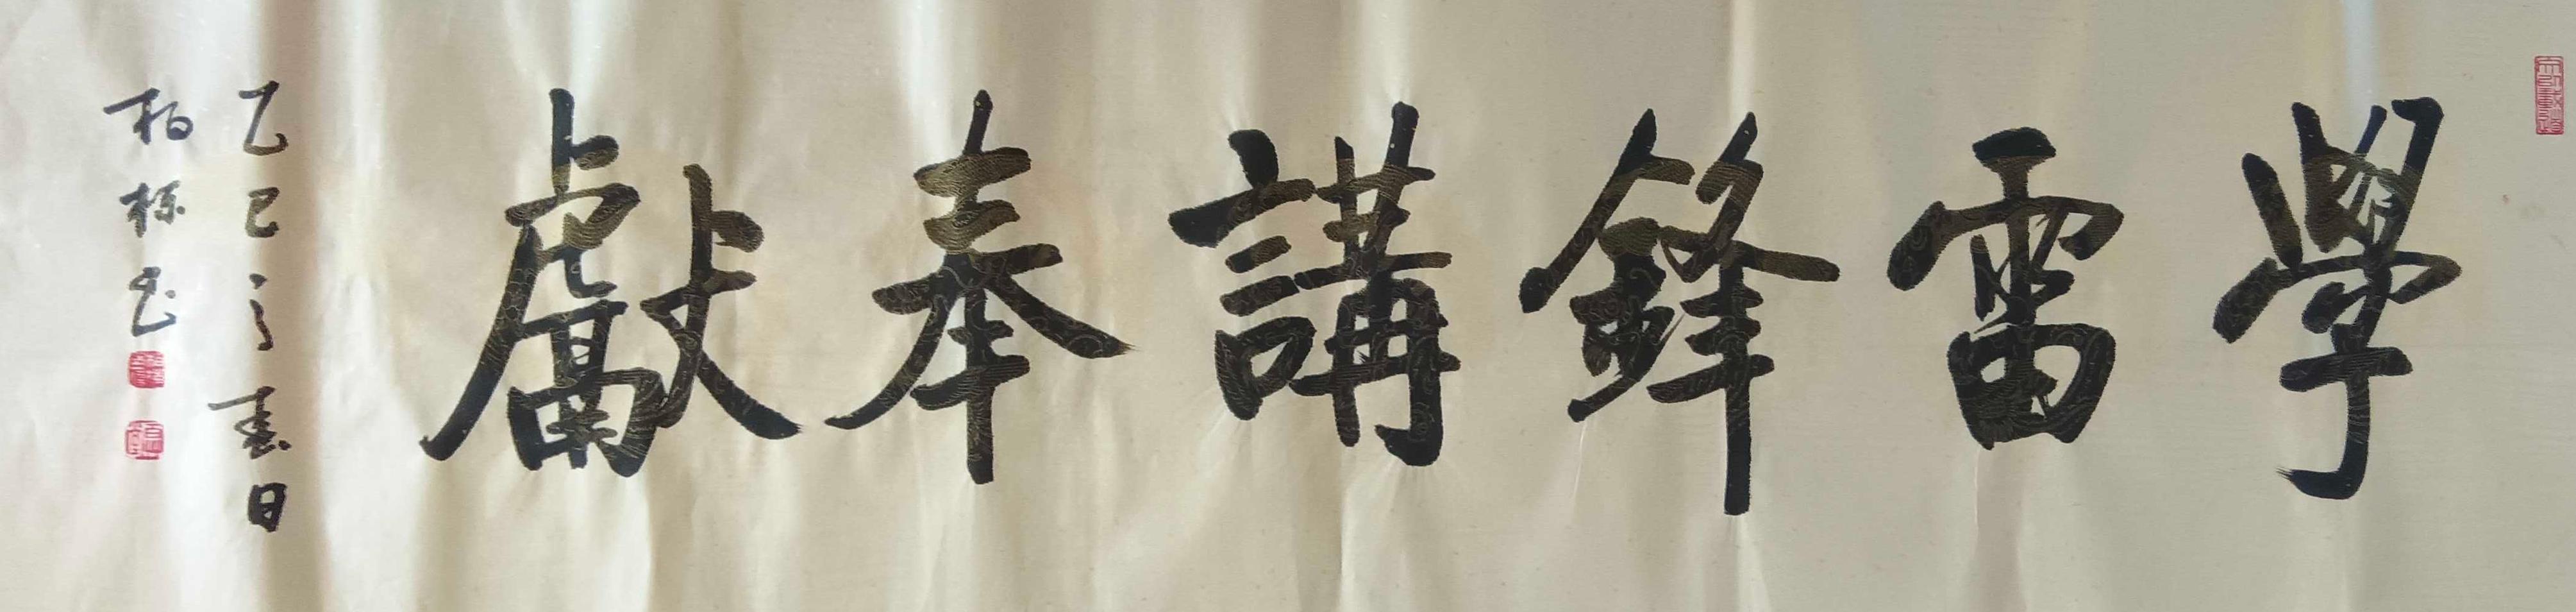 學雷鋒講奉獻
乙巳之春日
柏栋书